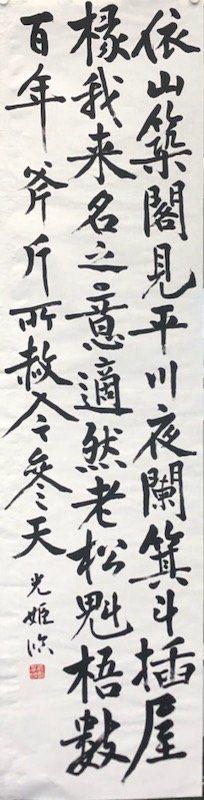 依山築閣見平川夜闌箕斗插屋
椽我来名之意適然老松魁梧數
百年斧斤所赦今參天
光姫臨